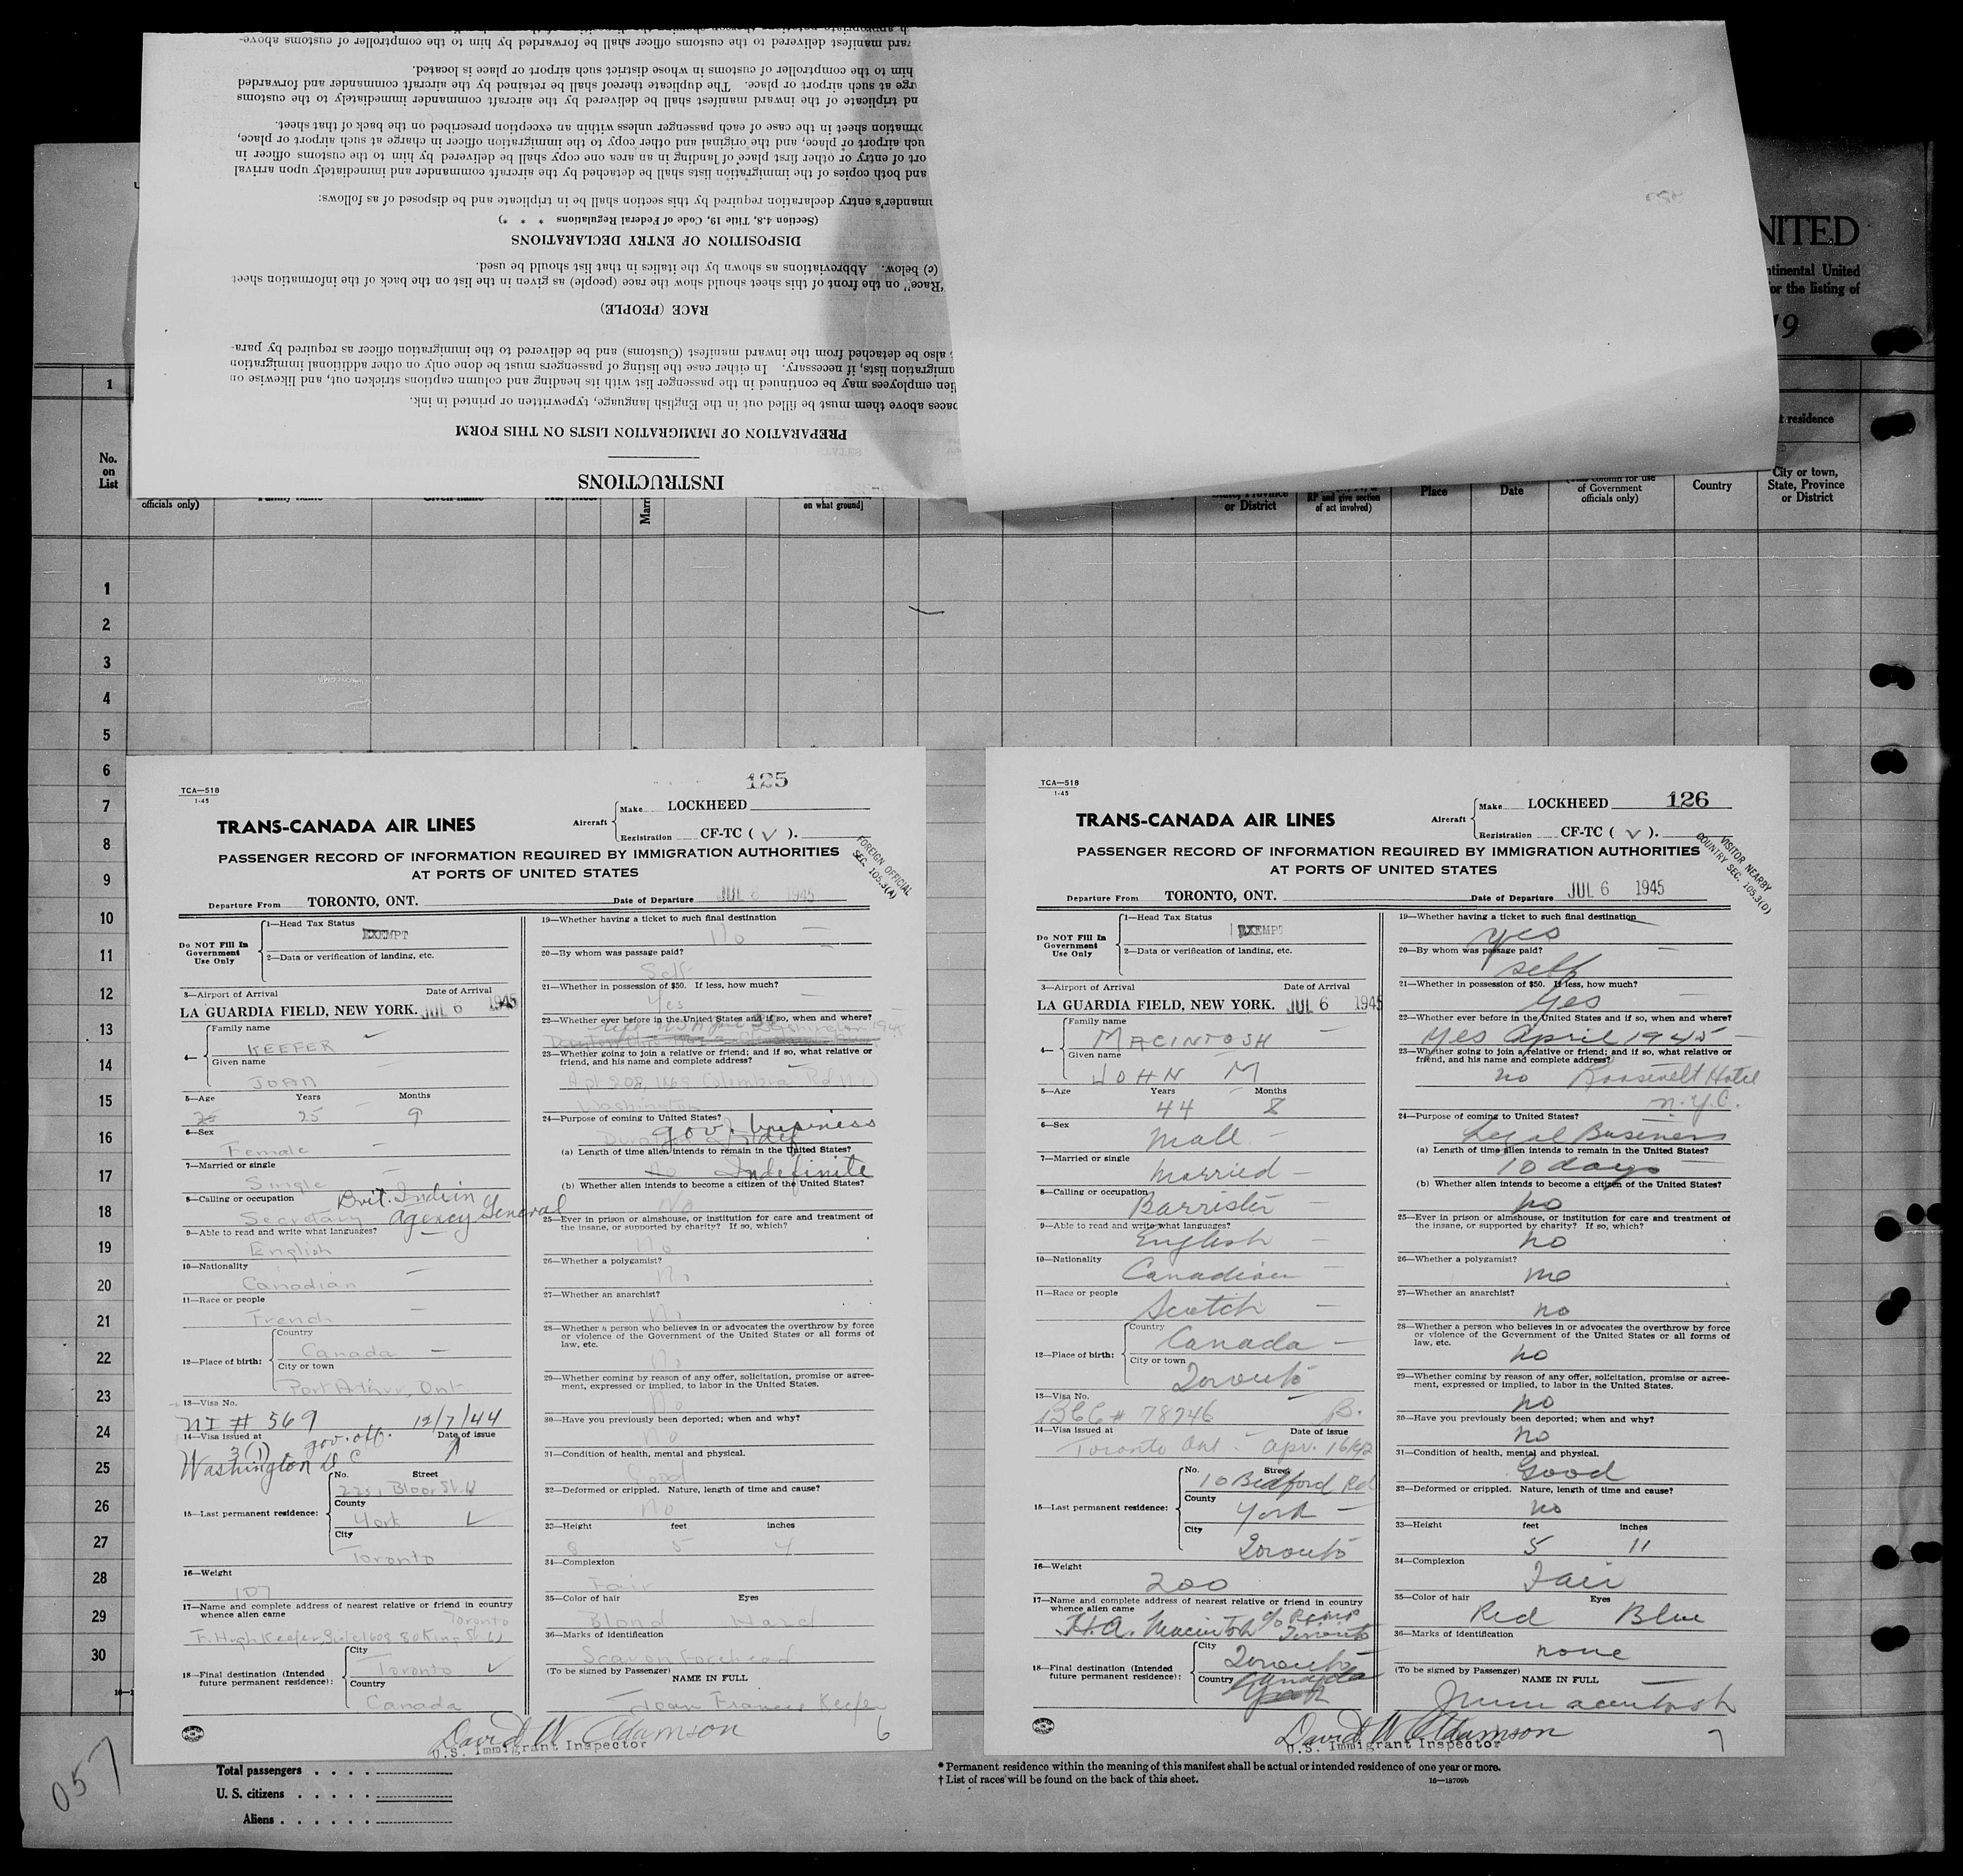 ard manifest delivered to the customs officer shall be forwarded by him to the comptroller of customs above-
him to the comptroller of customs in whose district such airport or place is located.
rge at such airport or place. The duplicate thereof shall be retained by the aircraft commander and forwarded
nd triplicate of the inward manifest shall be delivered by the aircraft commander immediately to the customs
ormation sheet in the case of each passenger unless within an exception prescribed on the back of that sheet.
uch airport or place, and the original and other copy to the immigration officer in charge at such airport or place,
ort of entry or other first place of landing in an area one copy shall be delivered by him to the customs officer in
and both copies of the immigration lists shall be detached by the aircraft commander and immediately upon arrival
mmander's entry declaration required by this section shall be in triplicate and be disposed of as follows:
(Section 4.8, Title 19, Code of Federal Regulations * * *)
DISPOSITION OF ENTRY DECLARATIONS
(c) below. Abbreviations as shown by the italics in that list should be used.
"Race" on the front of this sheet should show the race (people) as given in the list on the back of the information sheet
RACE (PEOPLE)
also be detached from the inward manifest (Customs) and be delivered to the immigration officer as required by para-
migration lists, if necessary. In either case the listing of passengers must be done only on other additional immigration
lien employees may be continued in the passenger list with its heading and column captions stricken out, and likewise on
paces above them must be filled out in the English language, typewritten or printed in ink.
PREPARATION OF IMMIGRATION LISTS ON THIS FORM
INSTRUCTIONS
NITED
ntinental United
or the listing of
19
1
t residence
No.
on
List
officials only)
Family name
Given name
Marr
on what ground]
State, Province
or District
RP and give section
of act involved)
Place
Date
(This column for use
of Government
officials only)
Country
City or town,
State, Province
or District
1
2
3
4
5
6
7
8
9
10
11
12
13
14
15
16
17
18
19
20
21
22
23
24
25
26
27
28
29
30
TCA—518
1-45
125
TRANS-CANADA AIR LINES
Aircraft
Make LOCKHEED
Registration CF-TC ( ✓ ).
PASSENGER RECORD OF INFORMATION REQUIRED BY IMMIGRATION AUTHORITIES
AT PORTS OF UNITED STATES
FOREIGN OFFICIAL
SEC. 105.3(A)
Departure From TORONTO, ONT. Date of Departure JUL 6 1945
Do NOT Fill In
Government
Use Only
1—Head Tax Status
EXEMPT
2—Data or verification of landing, etc.
3—Airport of Arrival Date of Arrival
LA GUARDIA FIELD, NEW YORK. JUL 6 1945
4—
Family name
KEEFER
Given name
JOAN
5—Age Years Months
25 25 9
6—Sex
Female
7—Married or single
Single
8—Calling or occupation Brit. Indian
Secretary Agency General
9—Able to read and write what languages?
English
10—Nationality
Canadian
11—Race or people
French
12—Place of birth:
Country
Canada
City or town
Port Arthur, Ont
13—Visa No.
NI # 569 12/7/44
14—Visa issued at 3(1) gov. off. Date of issue
Washington D C
15—Last permanent residence:
No. Street
Bloor St. W
County
York
City
Toronto
16—Weight
107
17—Name and complete address of nearest relative or friend in country
whence alien came Toronto
F. Hugh Keefer, Suite 1608 80 King St W
18—Final destination (Intended
future permanent residence):
City
Toronto
Country
Canada
19—Whether having a ticket to such final destination
No
20—By whom was passage paid?
Self
21—Whether in possession of $50. If less, how much?
Yes
22—Whether ever before in the United States and if so, when and where?
Washington
23—Whether going to join a relative or friend; and if so, what relative or
friend, and his name and complete address?
Apt 208, Columbia Rd NW
Washington
24—Purpose of coming to United States?
gov. business
(a) Length of time alien intends to remain in the United States?
Indefinite
(b) Whether alien intends to become a citizen of the United States?
No
25—Ever in prison or almshouse, or institution for care and treatment of
the insane, or supported by charity? If so, which?
No
26—Whether a polygamist?
No
27—Whether an anarchist?
No
28—Whether a person who believes in or advocates the overthrow by force
or violence of the Government of the United States or all forms of
law, etc.
No
29—Whether coming by reason of any offer, solicitation, promise or agree-
ment, expressed or implied, to labor in the United States.
No
30—Have you previously been deported; when and why?
No
31—Condition of health, mental and physical.
Good
32—Deformed or crippled. Nature, length of time and cause?
No
33—Height feet inches
5 4
34—Complexion
Fair
35—Color of hair Eyes
Blond
36—Marks of identification
Scar on forehead
(To be signed by Passenger) NAME IN FULL
Joan Frances Keefer
David W Adamson
U.S. Immigrant Inspector
6
TCA—518
1-45
126
TRANS-CANADA AIR LINES
Aircraft
Make LOCKHEED
Registration CF-TC ( ✓ ).
PASSENGER RECORD OF INFORMATION REQUIRED BY IMMIGRATION AUTHORITIES
AT PORTS OF UNITED STATES
VISITOR NEARBY
COUNTRY SEC. 105.3(D)
Departure From TORONTO, ONT. Date of Departure JUL 6 1945
Do NOT Fill In
Government
Use Only
1—Head Tax Status
EXEMPT
2—Data or verification of landing, etc.
3—Airport of Arrival Date of Arrival
LA GUARDIA FIELD, NEW YORK. JUL 6 1945
4—
Family name
MACINTOSH
Given name
JOHN M
5—Age Years Months
44 8
6—Sex
Male
7—Married or single
Married
8—Calling or occupation
Barrister
9—Able to read and write what languages?
English
10—Nationality
Canadian
11—Race or people
Scotch
12—Place of birth:
Country
Canada
City or town
Toronto
13—Visa No.
BCC # 78746 B.
14—Visa issued at Date of issue
Toronto Ont. Apr. 16/42
15—Last permanent residence:
No. Street
10 Bedford Rd
County
York
City
Toronto
16—Weight
200
17—Name and complete address of nearest relative or friend in country
whence alien came
H.A. Macintosh Toronto
18—Final destination (Intended
future permanent residence):
City
Toronto
Country
Canada
19—Whether having a ticket to such final destination
yes
20—By whom was passage paid?
self
21—Whether in possession of $50. If less, how much?
Yes
22—Whether ever before in the United States and if so, when and where?
Yes April 1945
23—Whether going to join a relative or friend; and if so, what relative or
friend, and his name and complete address?
no Roosevelt Hotel
N.Y.C.
24—Purpose of coming to United States?
Legal Business
(a) Length of time alien intends to remain in the United States?
10 days
(b) Whether alien intends to become a citizen of the United States?
no
25—Ever in prison or almshouse, or institution for care and treatment of
the insane, or supported by charity? If so, which?
no
26—Whether a polygamist?
no
27—Whether an anarchist?
no
28—Whether a person who believes in or advocates the overthrow by force
or violence of the Government of the United States or all forms of
law, etc.
no
29—Whether coming by reason of any offer, solicitation, promise or agree-
ment, expressed or implied, to labor in the United States.
no
30—Have you previously been deported; when and why?
no
31—Condition of health, mental and physical.
Good
32—Deformed or crippled. Nature, length of time and cause?
no
33—Height feet inches
5 11
34—Complexion
Fair
35—Color of hair Eyes
Red Blue
36—Marks of identification
none
(To be signed by Passenger) NAME IN FULL
David W Adamson
U.S. Immigrant Inspector
7
057
Total passengers . . . .
U. S. citizens . . . . .
Aliens . . . . . .
* Permanent residence within the meaning of this manifest shall be actual or intended residence of one year or more.
† List of races will be found on the back of this sheet.
16—18709b